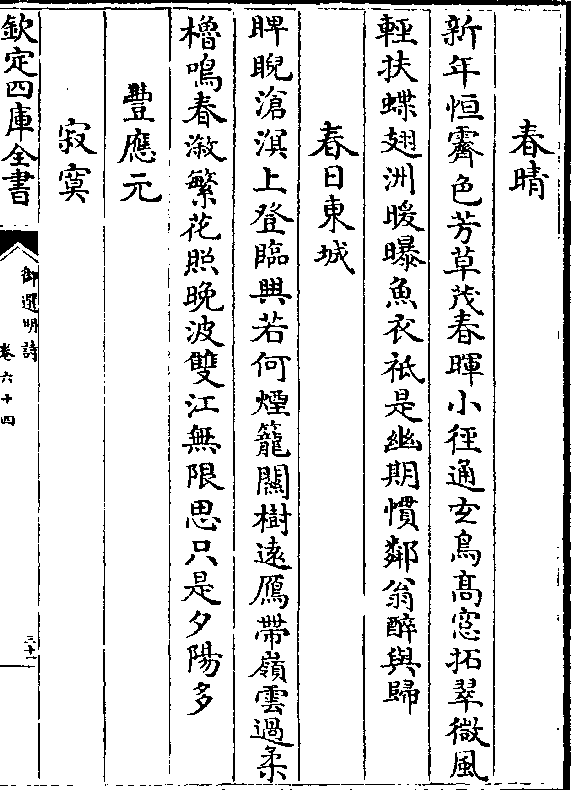 春晴
新年恒霽色芳草茂春暉小徑通玄鳥高窓拓翠微風
輕扶蝶翅洲暖曝魚衣袛是幽期慣鄰翁醉與歸
春日東城
睥睨滄溟上登臨興若何煙籠關樹遠鴈帶嶺雲過柔
櫓鳴春漵繁花照晚波雙江無限思只是夕陽多
豐應元
寂寞
欽定四庫全書
御選明詩
卷六十四
三十一